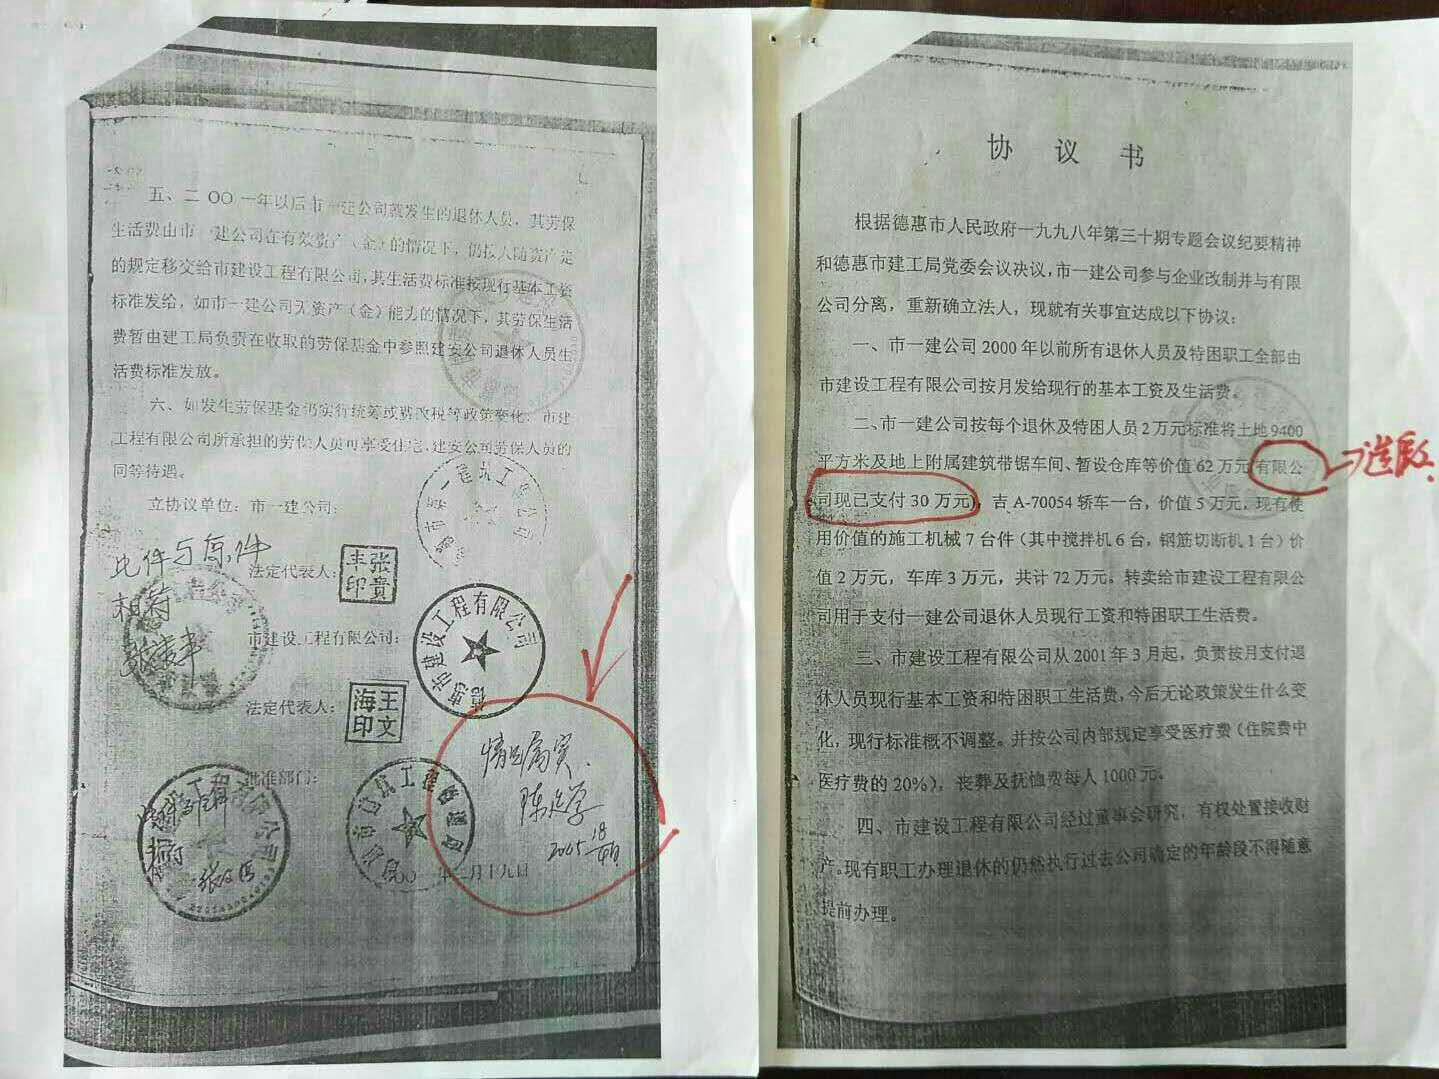 协议书
根据德惠市人民政府一九九八年第三十期专题会议纪要精神
和德惠市建工局党委会议决议，市一建公司参与企业改制并与有限
公司分离，重新确立法人，现就有关事宜达成以下协议：
一、市一建公司2000年以前所有退休人员及特困职工全部由
市建设工程有限公司按月发给现行的基本工资及生活费。
二、市一建公司按每个退休及特困人员2万元标准将土地9400
平方米及地上附属建筑带锯车间、暂设仓库等价值62万元(有限公
司现已支付30万元)，吉A-70054轿车一台，价值5万元，现有使
用价值的施工机械7台件（其中搅拌机6台，钢筋切断机1台）价
值2万元，车库3万元，共计72万元。转卖给市建设工程有限公
司用于支付一建公司退休人员现行工资和特困职工生活费。
三、市建设工程有限公司从2001年3月起，负责按月支付退
休人员现行基本工资和特困职工生活费，今后无论政策发生什么变
化，现行标准概不调整。并按公司内部规定享受医疗费（住院费中
医疗费的20%），丧葬及抚恤费每人1000元。
四、市建设工程有限公司经过董事会研究，有权处置接收财
产。现有职工办理退休的仍然执行过去公司确定的年龄段不得随意
提前办理。
五、二OO一年以后市一建公司新发生的退休人员，其劳保
生活费由市一建公司在有效资产（金）的情况下，仍按人随资产走
的规定移交给市建设工程有限公司，其生活费标准按现行基本工资
标准发给，如市一建公司无资产（金）能力的情况下，其劳保生活
费暂由建工局负责在收取的劳保基金中参照建安公司退休人员生
活费标准发放。
六、如发生劳保基金仍实行统筹或费改税等政策变化，市建
工程有限公司所承担的劳保人员可享受住宅、建安公司劳保人员的
同等待遇。
立协议单位：市一建公司：
此件与原件
相符
法定代表人：
张贵丰印
市建设工程有限公司：
德惠市建设工程有限公司
法定代表人：
王文海印
批准部门：
情况属实.
陈延学
2005
年二月十九日